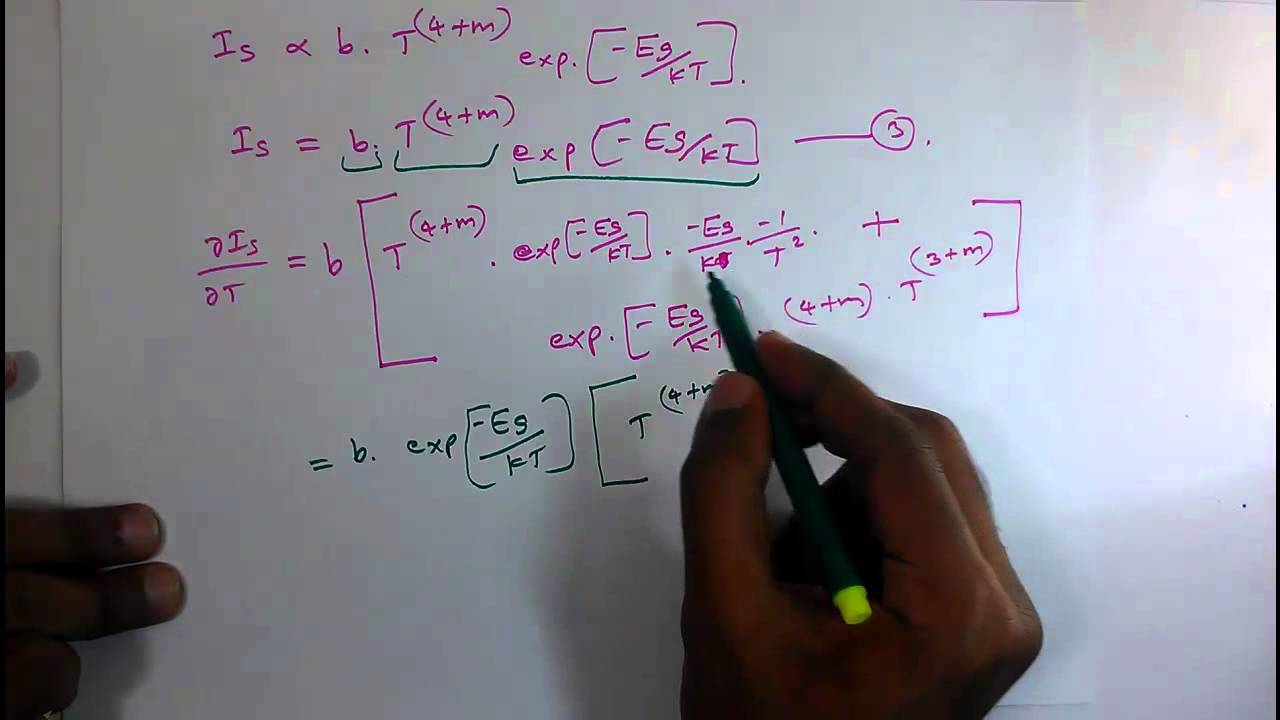 Is ∝ b. T^(4+m) exp. [-Eg/kT].
Is = b. T^(4+m) exp [-Eg/kT] —— ③.
∂Is/∂T = b [ T^(4+m) . exp[-Eg/kT] . -Eg/k . -1/T² . +
exp. [-Eg/kT] . (4+m) . T^(3+m) ]
= b. exp [-Eg/kT] [ T^(4+m